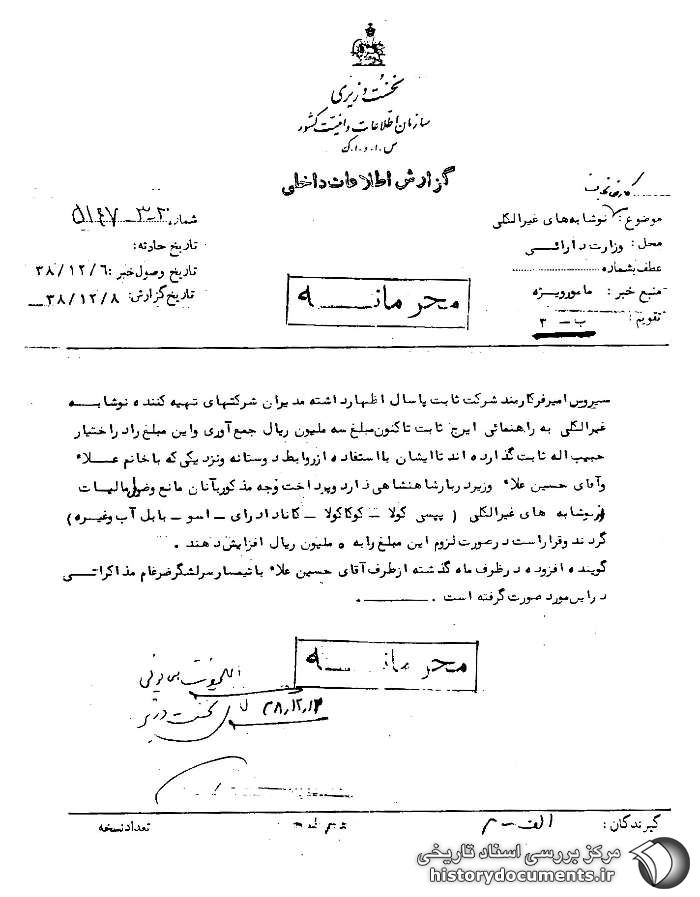 نخست وزیری
سازمان اطلاعات و امنیت کشور
س.ا.و.ا.ک
گزارش اطلاعات داخلی
شماره: ۳-۲۰ ۵۱۴۷
تاریخ حادثه:
تاریخ وصول خبر: ۳۸/۱۲/۶
تاریخ گزارش: ۳۸/۱۲/۸
موضوع: نوشابه‌های غیرالکلی
محل: وزارت دارائی
عطف بشماره
منبع خبر: مامور ویژه
تقویم: ب - ۳
محرمانه
سیروس امیرفر کارمند شرکت ثابت پاسال اظهار داشته مدیران شرکتهای تهیه کننده نوشابه
غیرالکلی به راهنمائی ایرج ثابت تاکنون مبلغ سه ملیون ریال جمع آوری و این مبلغ را در اختیار
حبیب اله ثابت گذارده اند تا ایشان با استفاده از روابط دوستانه و نزدیکی که با خانم علاء
و آقای حسین علاء وزیر دربار شاهنشاهی دارد و پرداخت وجه مذکور بآنان مانع وصول مالیات
از نوشابه های غیرالکلی ( پپسی کولا - کوکاکولا - کانادادرای - اسو - بابل آب و غیره )
گردند و قرار است در صورت لزوم این مبلغ را به ۵ ملیون ریال افزایش دهند .
گوینده افزوده در ظرف ماه گذشته از طرف آقای حسین علاء با تیمسار سرلشگر ضرغام مذاکراتی
در این مورد صورت گرفته است .
محرمانه
۳۸،۱۲،۱۳
نخست وزیر
گیرندگان: الف - م
تعداد نسخه
مرکز بررسی اسناد تاریخی
historydocuments.ir